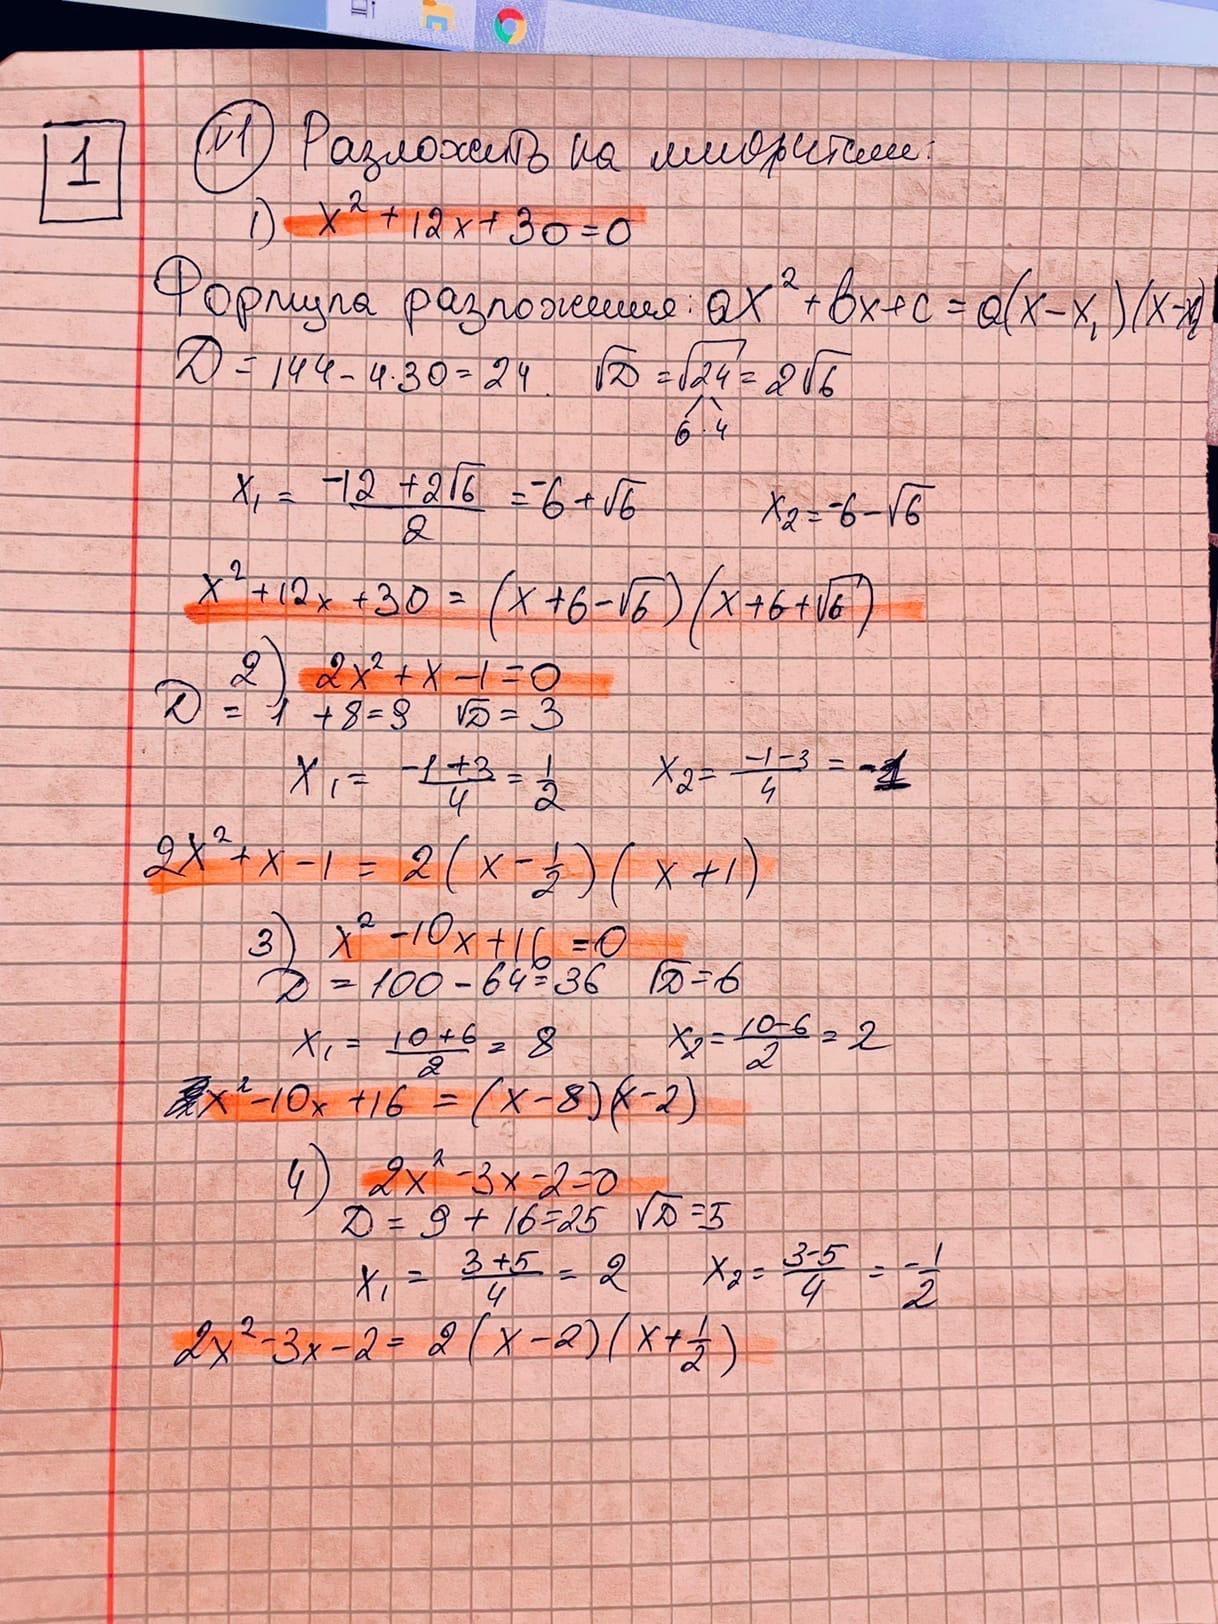 1
№1 Разложить на множители:
1) x² + 12x + 30 = 0
Формула разложения: ax² + bx + c = a(x - x₁)(x - x₂)
D = 144 - 4·30 = 24. √D = √24 = 2√6
6·4
x₁ = (-12 + 2√6)/2 = -6 + √6 x₂ = -6 - √6
x² + 12x + 30 = (x + 6 - √6)(x + 6 + √6)
2) 2x² + x - 1 = 0
D = 1 + 8 = 9 √D = 3
x₁ = (-1 + 3)/4 = 1/2 x₂ = (-1 - 3)/4 = -1
2x² + x - 1 = 2(x - 1/2)(x + 1)
3) x² - 10x + 16 = 0
D = 100 - 64 = 36 √D = 6
x₁ = (10 + 6)/2 = 8 x₂ = (10 - 6)/2 = 2
x² - 10x + 16 = (x - 8)(x - 2)
4) 2x² - 3x - 2 = 0
D = 9 + 16 = 25 √D = 5
x₁ = (3 + 5)/4 = 2 x₂ = (3 - 5)/4 = -1/2
2x² - 3x - 2 = 2(x - 2)(x + 1/2)